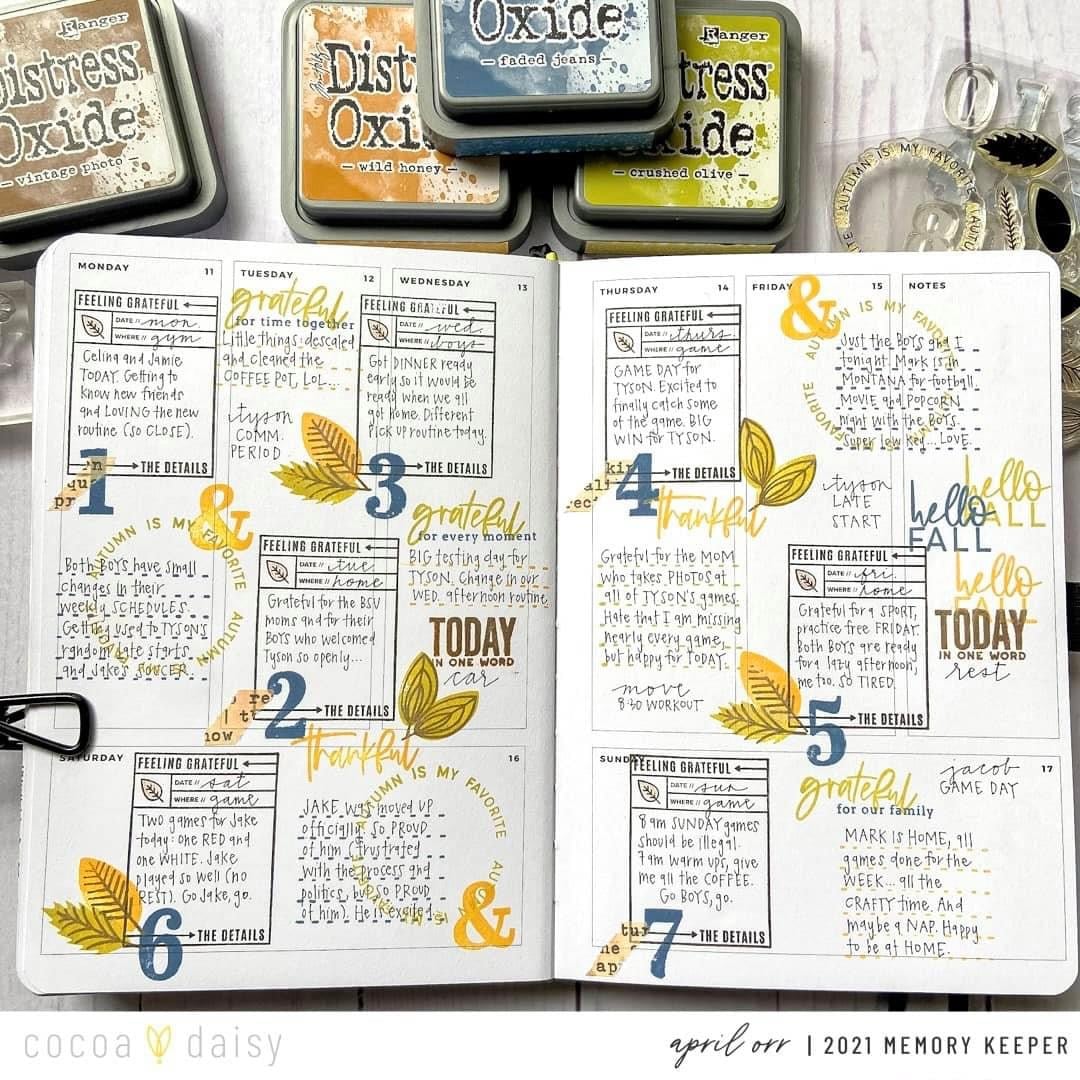 Ranger
Distress
Oxide
– vintage photo –
Distress
Oxide
– wild honey –
Oxide
– faded jeans –
Ranger
Distress
Oxide
– crushed olive –
AUTUMN IS MY FAVORITE
MONDAY 11
FEELING GRATEFUL
DATE // mon.
WHERE // gym
Celina and Jamie
TODAY. Getting to
know new friends
and LOVING the new
routine (so CLOSE).
THE DETAILS
1
&
AUTUMN IS MY FAVORITE AUTUMN
Both BOYS have small
changes in their
weekly SCHEDULES.
Getting used to TYSON'S
random late starts
and Jake's SOCCER.
TUESDAY 12
grateful
for time together
Little things: descaled
and cleaned the
COFFEE POT, LOL...
tyson
COMM.
PERIOD
FEELING GRATEFUL
DATE // tue.
WHERE // home
Grateful for the BSV
moms and for their
BOYS who welcomed
Tyson so openly...
THE DETAILS
2
WEDNESDAY 13
FEELING GRATEFUL
DATE // wed.
WHERE // boys
Got DINNER ready
early so it would be
ready when we all
got home. Different
pick up routine today.
THE DETAILS
3
grateful
for every moment
BIG testing day for
TYSON. Change in our
WED. afternoon routine
TODAY
IN ONE WORD
car
thankful
THURSDAY 14
FEELING GRATEFUL
DATE // thurs.
WHERE // game
GAME DAY for
TYSON. Excited to
finally catch some
of the game. BIG
WIN for TYSON.
THE DETAILS
4
thankful
Grateful for the MOM
who takes PHOTOS at
all of TYSON's games.
Hate that I am missing
nearly every game,
but happy for TODAY.
move
8:30 WORKOUT
FRIDAY 15
&
AUTUMN IS MY FAVORITE AUTUMN IS MY FAVORITE
Just the BOYS and I
tonight. Mark is in
MONTANA for football.
MOVIE and POPCORN
night with the BOYS.
Super low key... LOVE.
tyson
LATE
START
FEELING GRATEFUL
DATE // fri.
WHERE // home
Grateful for a SPORT,
practice free FRIDAY.
Both BOYS are ready
for a lazy afternoon,
me too. SO TIRED.
THE DETAILS
5
NOTES
hello
FALL
hello
FALL
hello
FALL
TODAY
IN ONE WORD
rest
SATURDAY 16
FEELING GRATEFUL
DATE // sat
WHERE // game
Two games for Jake
today: one RED and
one WHITE. Jake
played so well (no
REST). Go Jake, go.
THE DETAILS
6
AUTUMN IS MY FAVORITE
JAKE was moved UP
officially. SO PROUD
of him (frustrated
with the process and
politics, but so PROUD
of him). He is excited.
&
SUNDAY 17
FEELING GRATEFUL
DATE // sun
WHERE // game
8am SUNDAY games
should be illegal.
7am warm ups, give
me all the COFFEE.
Go BOYS, go.
THE DETAILS
7
grateful
for our family
jacob
GAME DAY
MARK is HOME, all
games done for the
WEEK... all the
CRAFTY time. And
maybe a NAP. Happy
to be at HOME.
cocoa daisy
april orr | 2021 MEMORY KEEPER